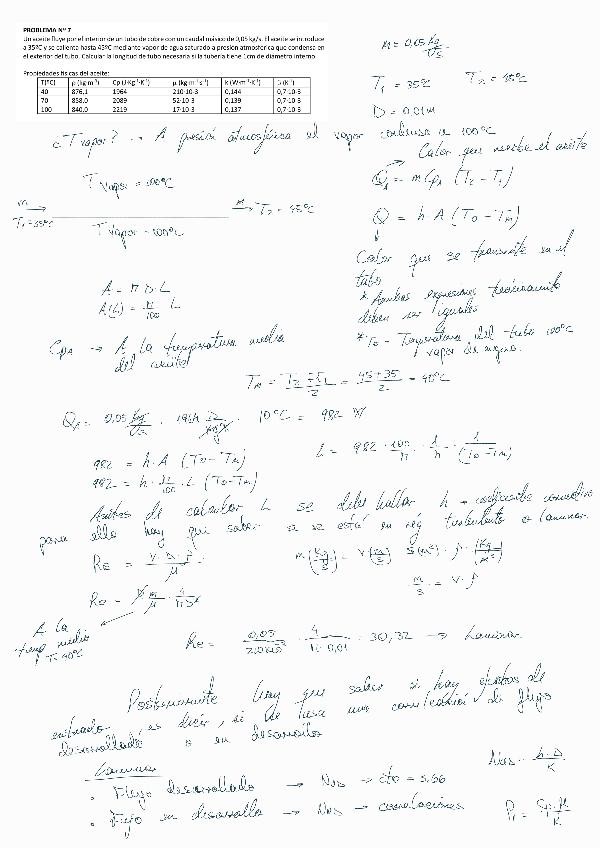 PROBLEMA Nº 7
Un aceite fluye por el interior de un tubo de cobre con un caudal másico de 0,05 kg/s. El aceite se introduce
a 35ºC y se calienta hasta 45ºC mediante vapor de agua saturado a presión atmosférica que condensa en
el exterior del tubo. Calcular la longitud de tubo necesaria si la tubería tiene 1 cm de diámetro interno.
Propiedades físicas del aceite:
T(ºC) ρ (kg·m⁻³) Cp (J·Kg⁻¹·K⁻¹) μ (kg·m⁻¹·s⁻¹) k (W·m⁻¹·K⁻¹) (K⁻¹)
40 876,1 1964 210·10-3 0,144 0,7·10-3
70 858,0 2089 52·10-3 0,139 0,7·10-3
100 840,0 2219 17·10-3 0,137 0,7·10-3
m = 0,05 kg/s
T1 = 35ºC T2 = 45ºC
D = 0,01 m
¿T vapor? → A presión atmosférica el vapor condensa a 100ºC
Calor que recibe el aceite
QA = m CpA (T2 - T1)
T vapor = 100ºC
m → T1 = 35ºC m → T2 = 45ºC
T vapor = 100ºC
Q = h A (To - Tm)
Calor que se transmite en el
tubo
* Ambas expresiones
deben ser iguales
* To - Temperatura del tubo 100ºC
vapor de agua.
A = π D · L
A(L) = π/100 L
CpA → A la temperatura media
del aceite
Tm = (T2 + T1)/2 = (45+35)/2 = 40ºC
QA = 0,05 kg/s · 1964 J/kgK · 10ºC = 982 W
982 = h · A (To - Tm)
982 = h · π/100 · L (To - Tm)
L = 982 · 100/π · 1/h · 1/(To - Tm)
Antes de calcular L se debe hallar h → coeficiente convectivo
para ello hay que saber si se está en rég turbulento o laminar.
Re = v · D · ρ / μ
m (kg/s) = v (m/s) S (m²) · ρ (kg/m³)
m/S = v · ρ
A la
temp medio
T = 40ºC
Re = 0,05 · 4 / π · 0,01 = 30,32 → Laminar
Posteriormente hay que saber si hay efectos de
entrada es decir, si se usa una correlación de flujo
desarrollado o en desarrollo
Laminar
· Flujo desarrollado → NuD → cte = 3.66
· Flujo en desarrollo → NuD → correlaciones
NuD = h · D / K
Pr = Cp · μ / K